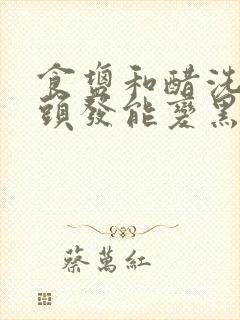 食塩和醋洗
頭發能變黑
蔡萬紅